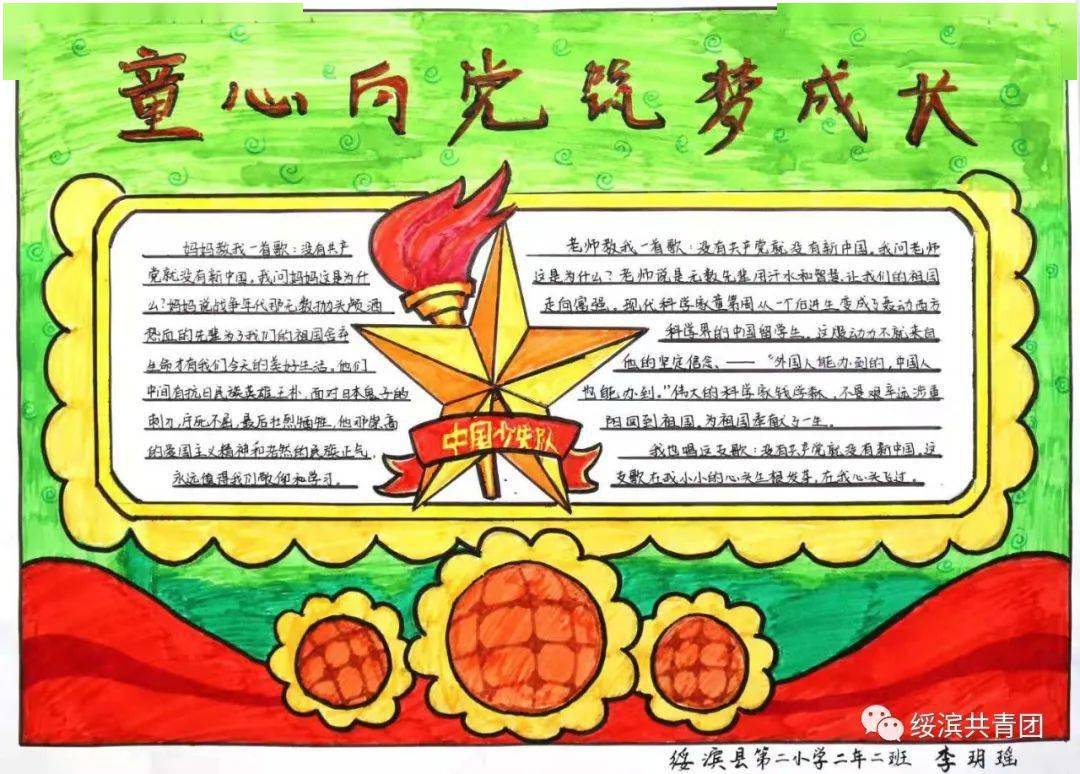 童心向党 筑梦成长
妈妈教我一首歌：没有共产
党就没有新中国。我问妈妈这是为什
么？妈妈说战争年代那无数抛头颅洒
热血的先辈为了我们的祖国舍弃
生命才有我们今天的美好生活。他们
中间有抗日民族英雄王朴，面对日本鬼子的
刺刀，宁死不屈，最后壮烈牺牲，他那崇高
的爱国主义精神和浩然的民族正气
永远值得我们敬仰和学习。
老师教我一首歌：没有共产党就没有新中国。我问老师
这是为什么？老师说是无数先辈用汗水和智慧，让我们的祖国
走向富强。现代科学家童第周从一个后进生变成了轰动西方
科学界的中国留学生。这股动力不就来自
他的坚定信念、——“外国人能办到的，中国人
也能办到。”伟大的科学家钱学森，不畏艰辛远涉重
阳回到祖国，为祖国奉献了一生。
我也唱这支歌：没有共产党就没有新中国。这
支歌在我小小的心头生根发芽，在我心头飞过。
中国少先队
绥滨共青团
绥滨县第二小学二年二班 李玥瑶